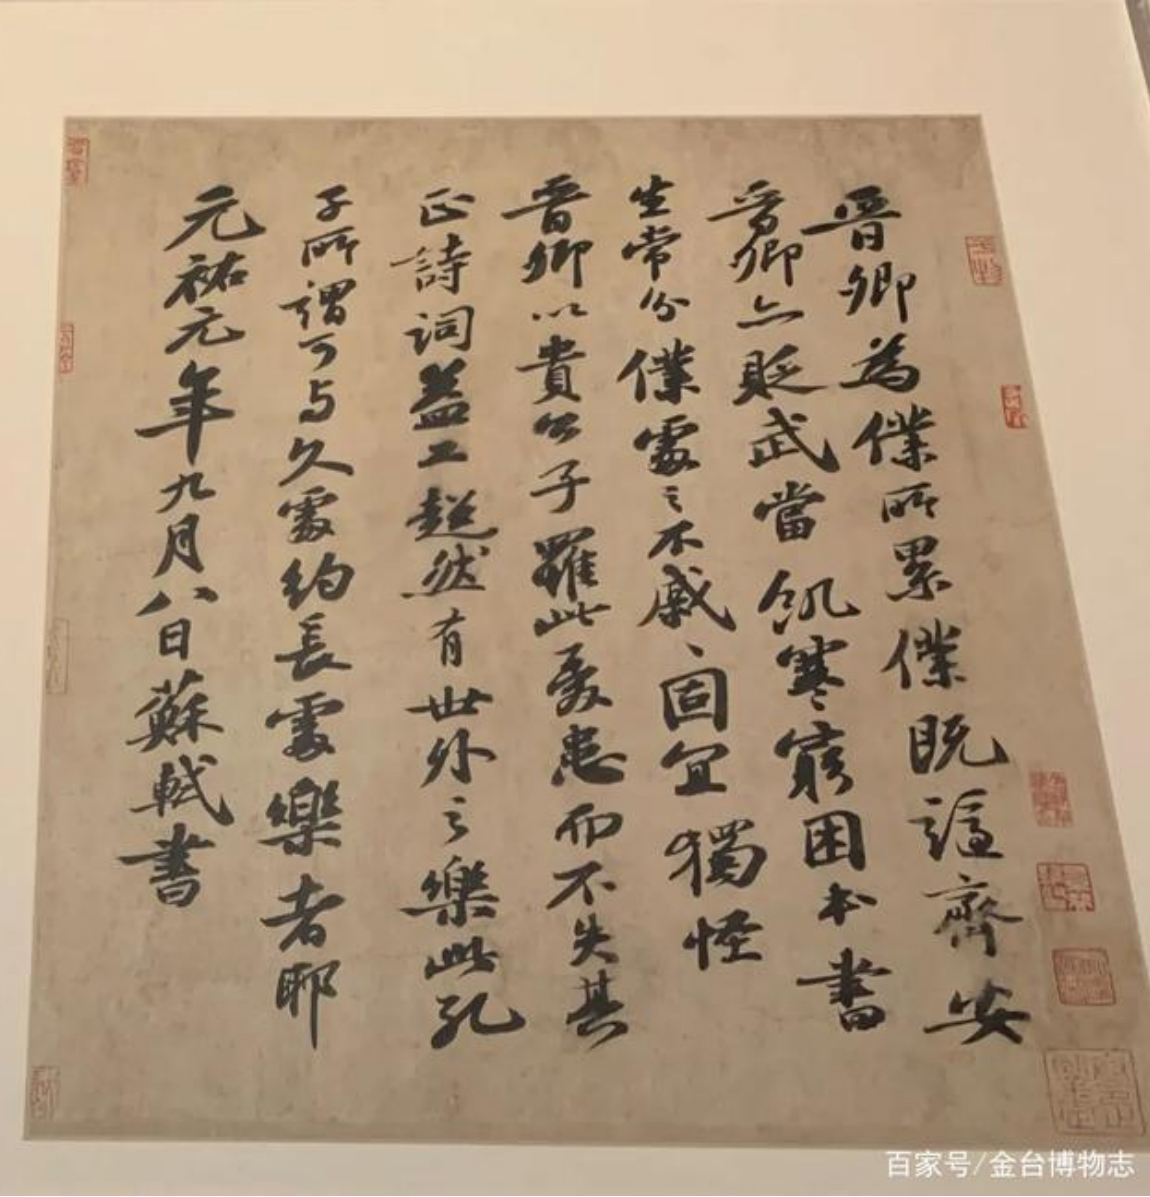 晉卿為僕所累僕既謫齊安
晉卿亦貶武當飢寒窮困本書
生常分僕處之不戚戚固宜獨怪
晉卿以貴公子罹此憂患而不失其
正詩詞益工超然有世外之樂此孔
子所謂可與久處約長處樂者耶
元祐元年九月八日蘇軾書
百家号/金台博物志